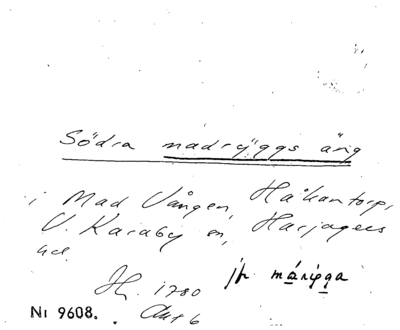 Södra madryggs äng
i Mad Vången, Håkantorp,
V. Karaby sn, Harjagers
hd.
1780 jfr märigga
Nı 9608. Akt 6